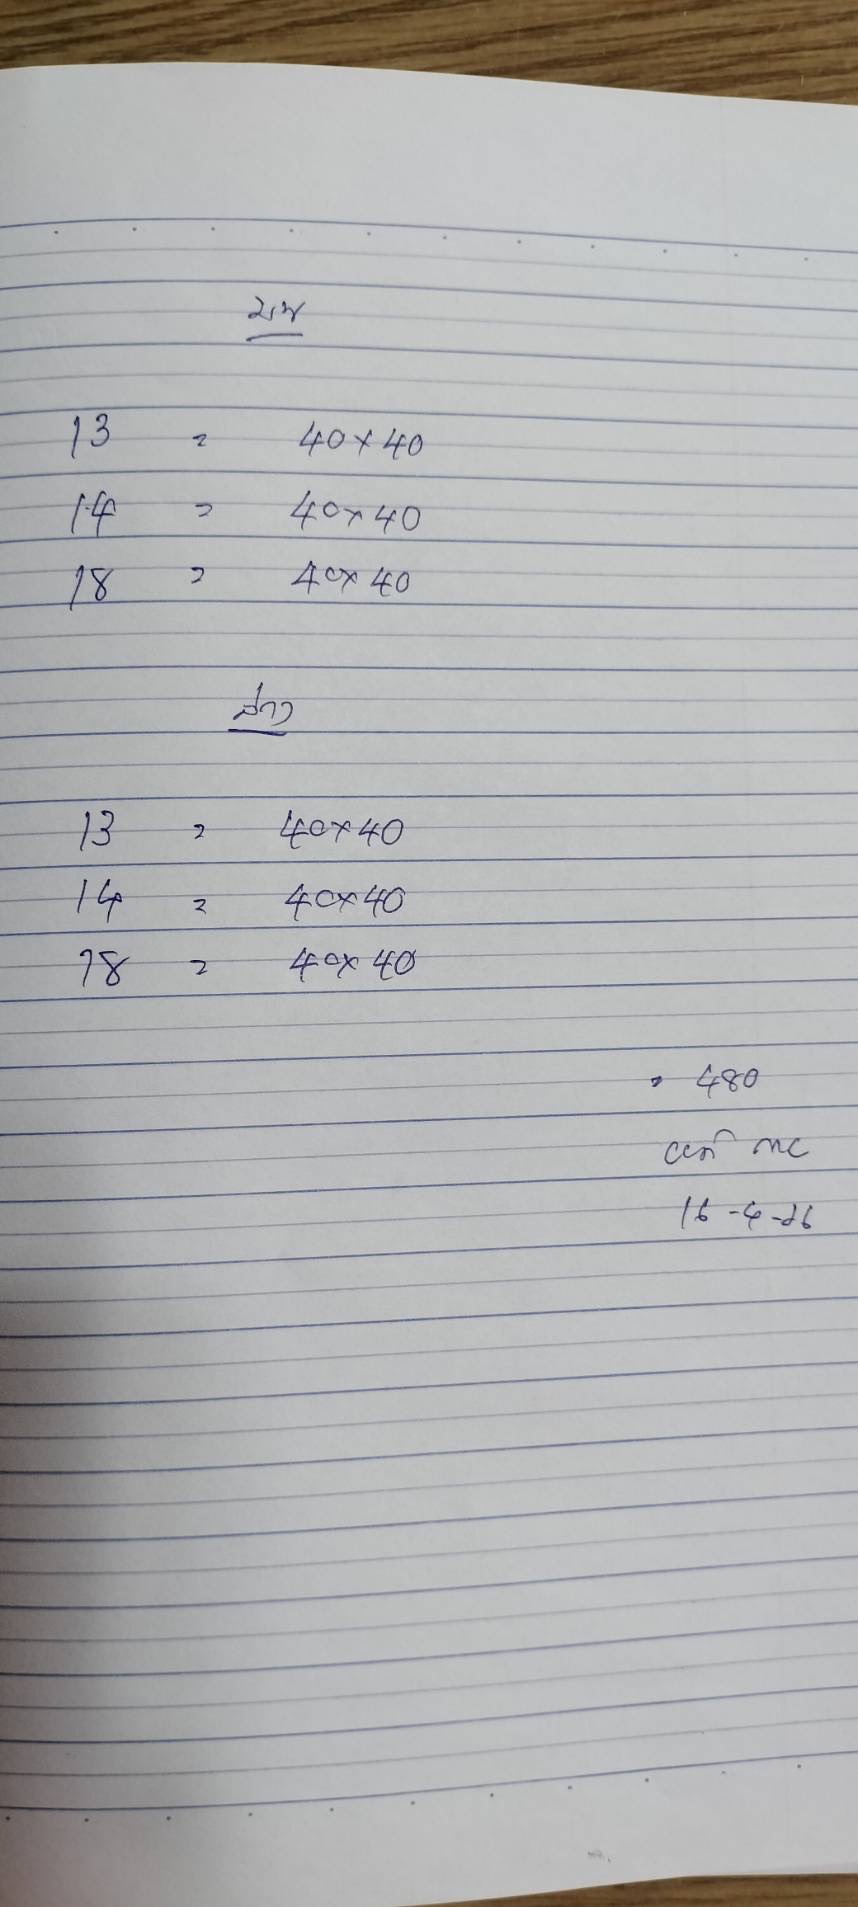 บน
13 = 40×40
14 = 40×40
18 = 40×40
ล่าง
13 = 40×40
14 = 40×40
18 = 40×40
= 480
16-4-26